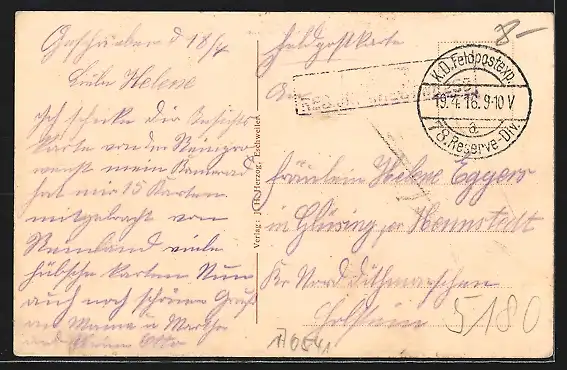 Geschrieben d 18/4
Liebe Helene
ich schicke Dir Ansichts
Karte von der
mein Kamerad
hat mir 15 Karten
mitgebracht vom
Rheinland viele
hübsche Karten Nun
auch noch schöne Grüße
an Mama u Martha
Otto
Verlag: J. Th. Herzog, Eschweiler.
Feldpostkarte
An
K.D. Feldpostexp.
19.4.16. 9-10 V
a
78. Reserve-Div.
Fräulein Helene Eggers
in Glüsing per Hennstedt
Kr Norddithmarschen
Holstein
5180